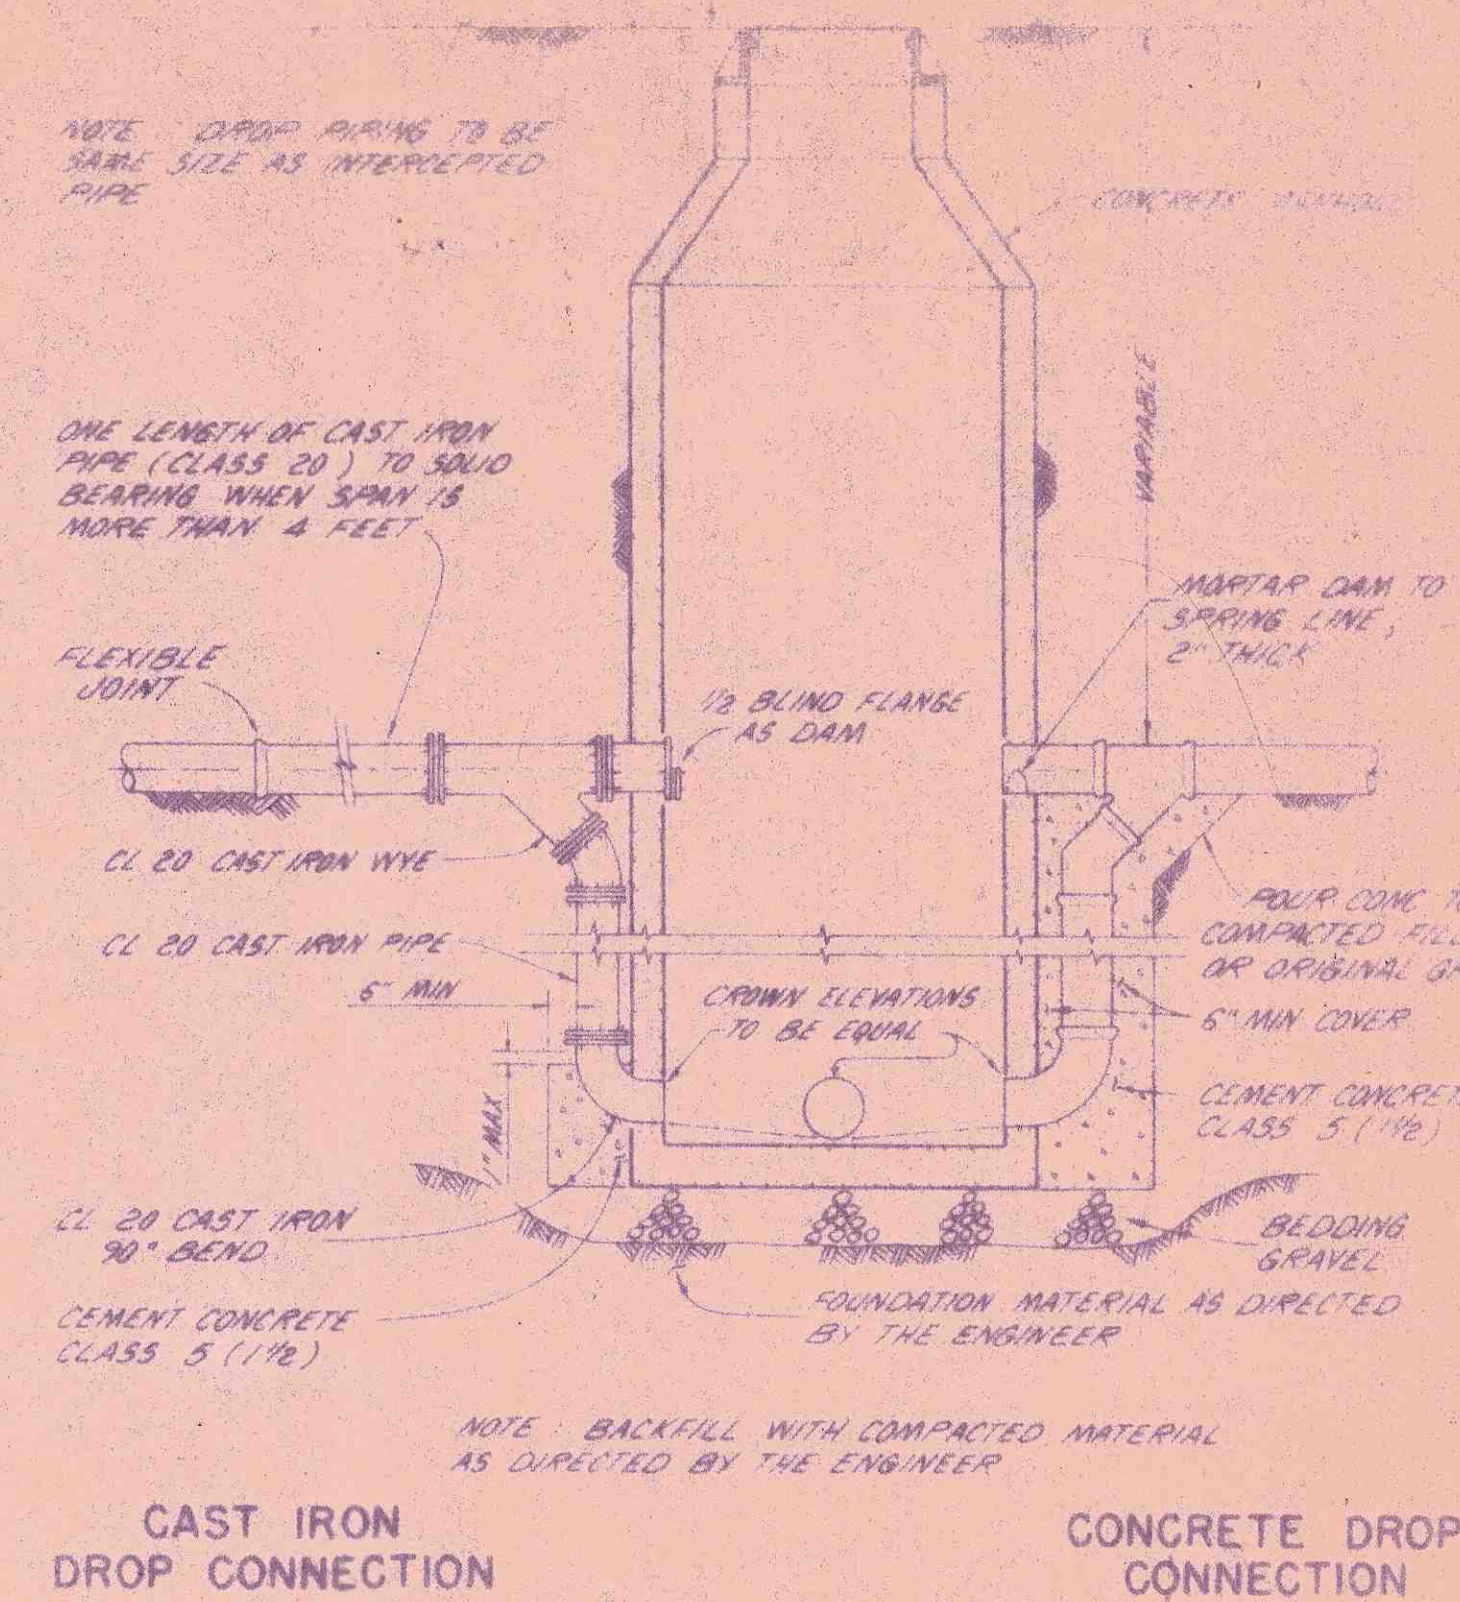 NOTE DROP PIPING TO BE
SAME SIZE AS INTERCEPTED
PIPE
CONCRETE MANHOLE
ONE LENGTH OF CAST IRON
PIPE (CLASS 20) TO SOLID
BEARING WHEN SPAN IS
MORE THAN 4 FEET
VARIABLE
MORTAR DAM TO
SPRING LINE,
2" THICK
FLEXIBLE
JOINT
1/2 BLIND FLANGE
AS DAM
CL 20 CAST IRON WYE
POUR CONC TO
COMPACTED FILL
OR ORIGINAL GR
CL 20 CAST IRON PIPE
6" MIN
CROWN ELEVATIONS
TO BE EQUAL
6" MIN COVER
1" MAX
CEMENT CONCRETE
CLASS 5 (1 1/2)
CL 20 CAST IRON
90° BEND
BEDDING
GRAVEL
CEMENT CONCRETE
CLASS 5 (1 1/2)
FOUNDATION MATERIAL AS DIRECTED
BY THE ENGINEER
NOTE : BACKFILL WITH COMPACTED MATERIAL
AS DIRECTED BY THE ENGINEER
CAST IRON
DROP CONNECTION
CONCRETE DROP
CONNECTION